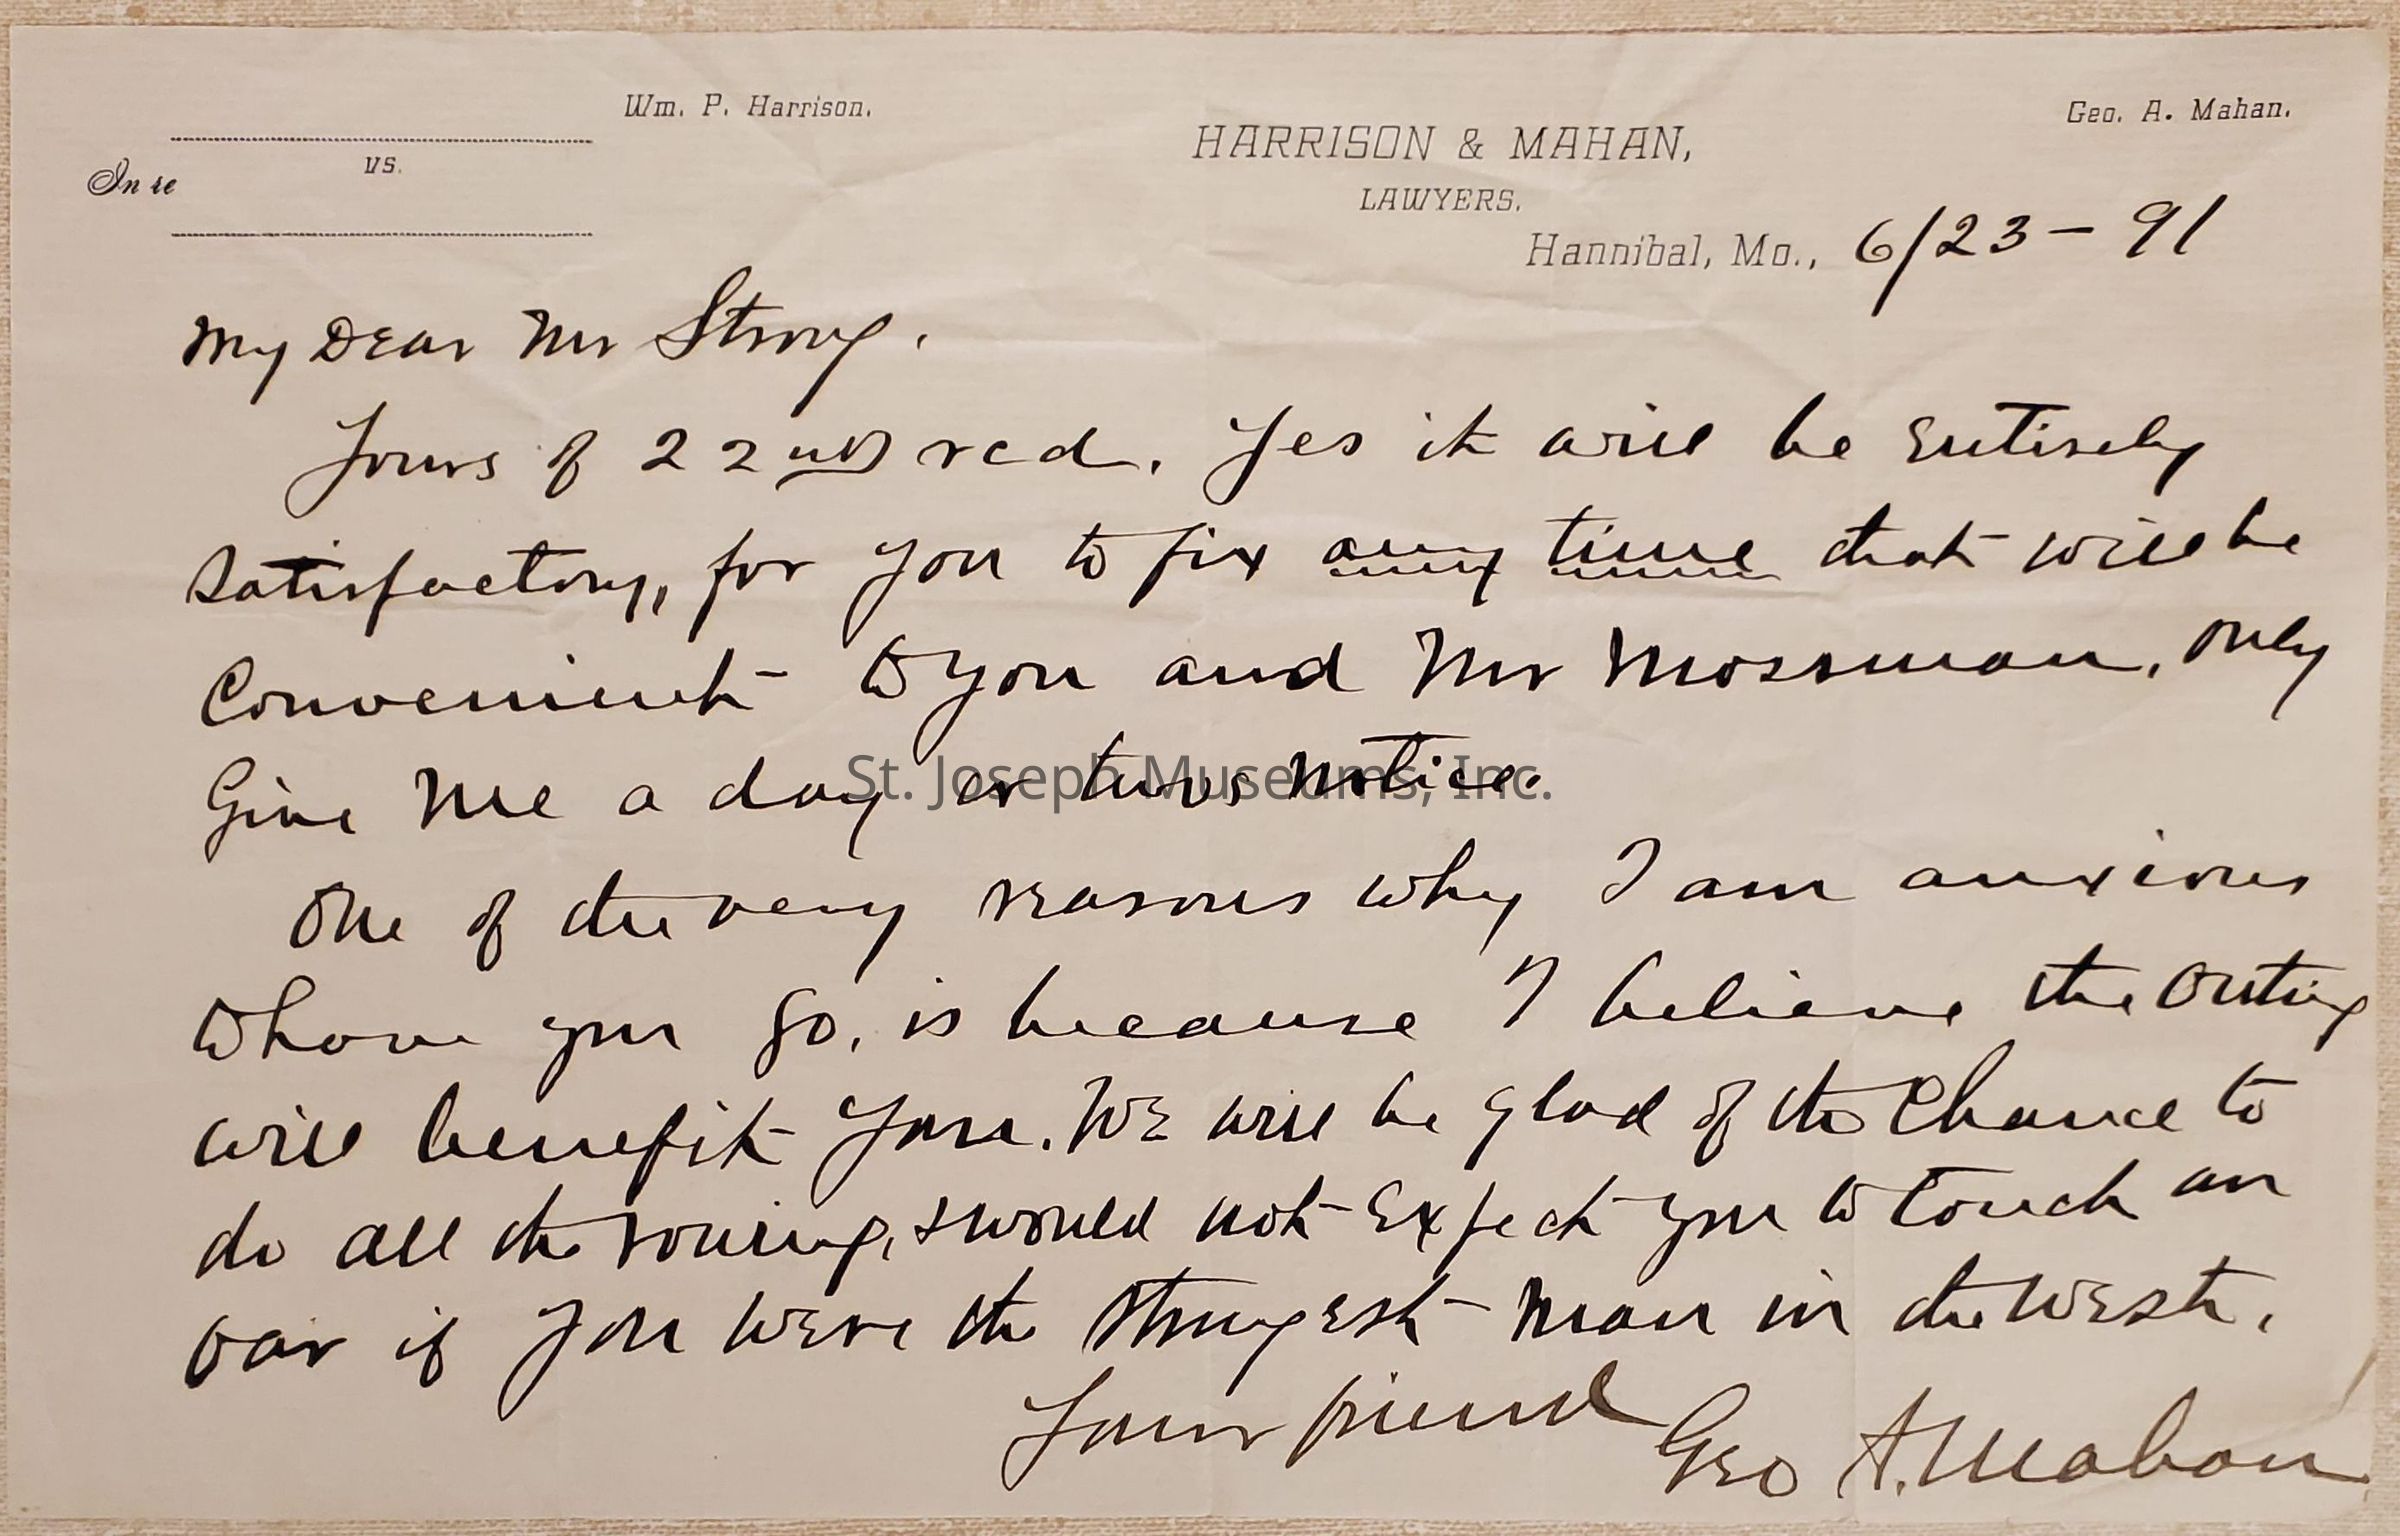 Wm. P. Harrison.
Geo. A. Mahan.
HARRISON & MAHAN,
LAWYERS.
In re
vs.
Hannibal, Mo., 6/23 - 91
My Dear Mr Strong.
Yours of 22nd rcd. Yes it will be entirely
satisfactory, for you to fix any time that will be
convenient to you and Mr Mossman, only
Give me a day or two's notice.
St. Joseph Museums, Inc.
One of the very reasons why I am anxious
to have you go, is because I believe the outing
will benefit you. We will be glad of the chance to
do all the rowing, & would not expect you to touch an
oar if you were the strongest man in the West.
Your friend
Geo A. Mahan